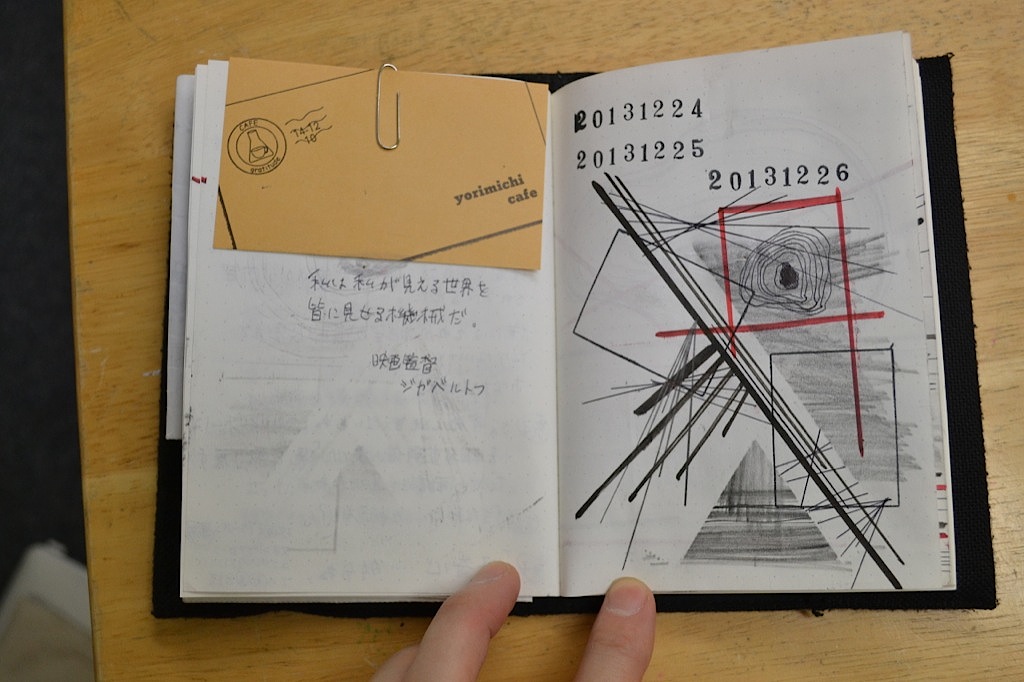 CAFE
gratitude
14.12
10
yorimichi
cafe
私は私が見える世界を
皆に見せる機械だ。
映画監督
ジガベルトフ
20131224
20131225
20131226